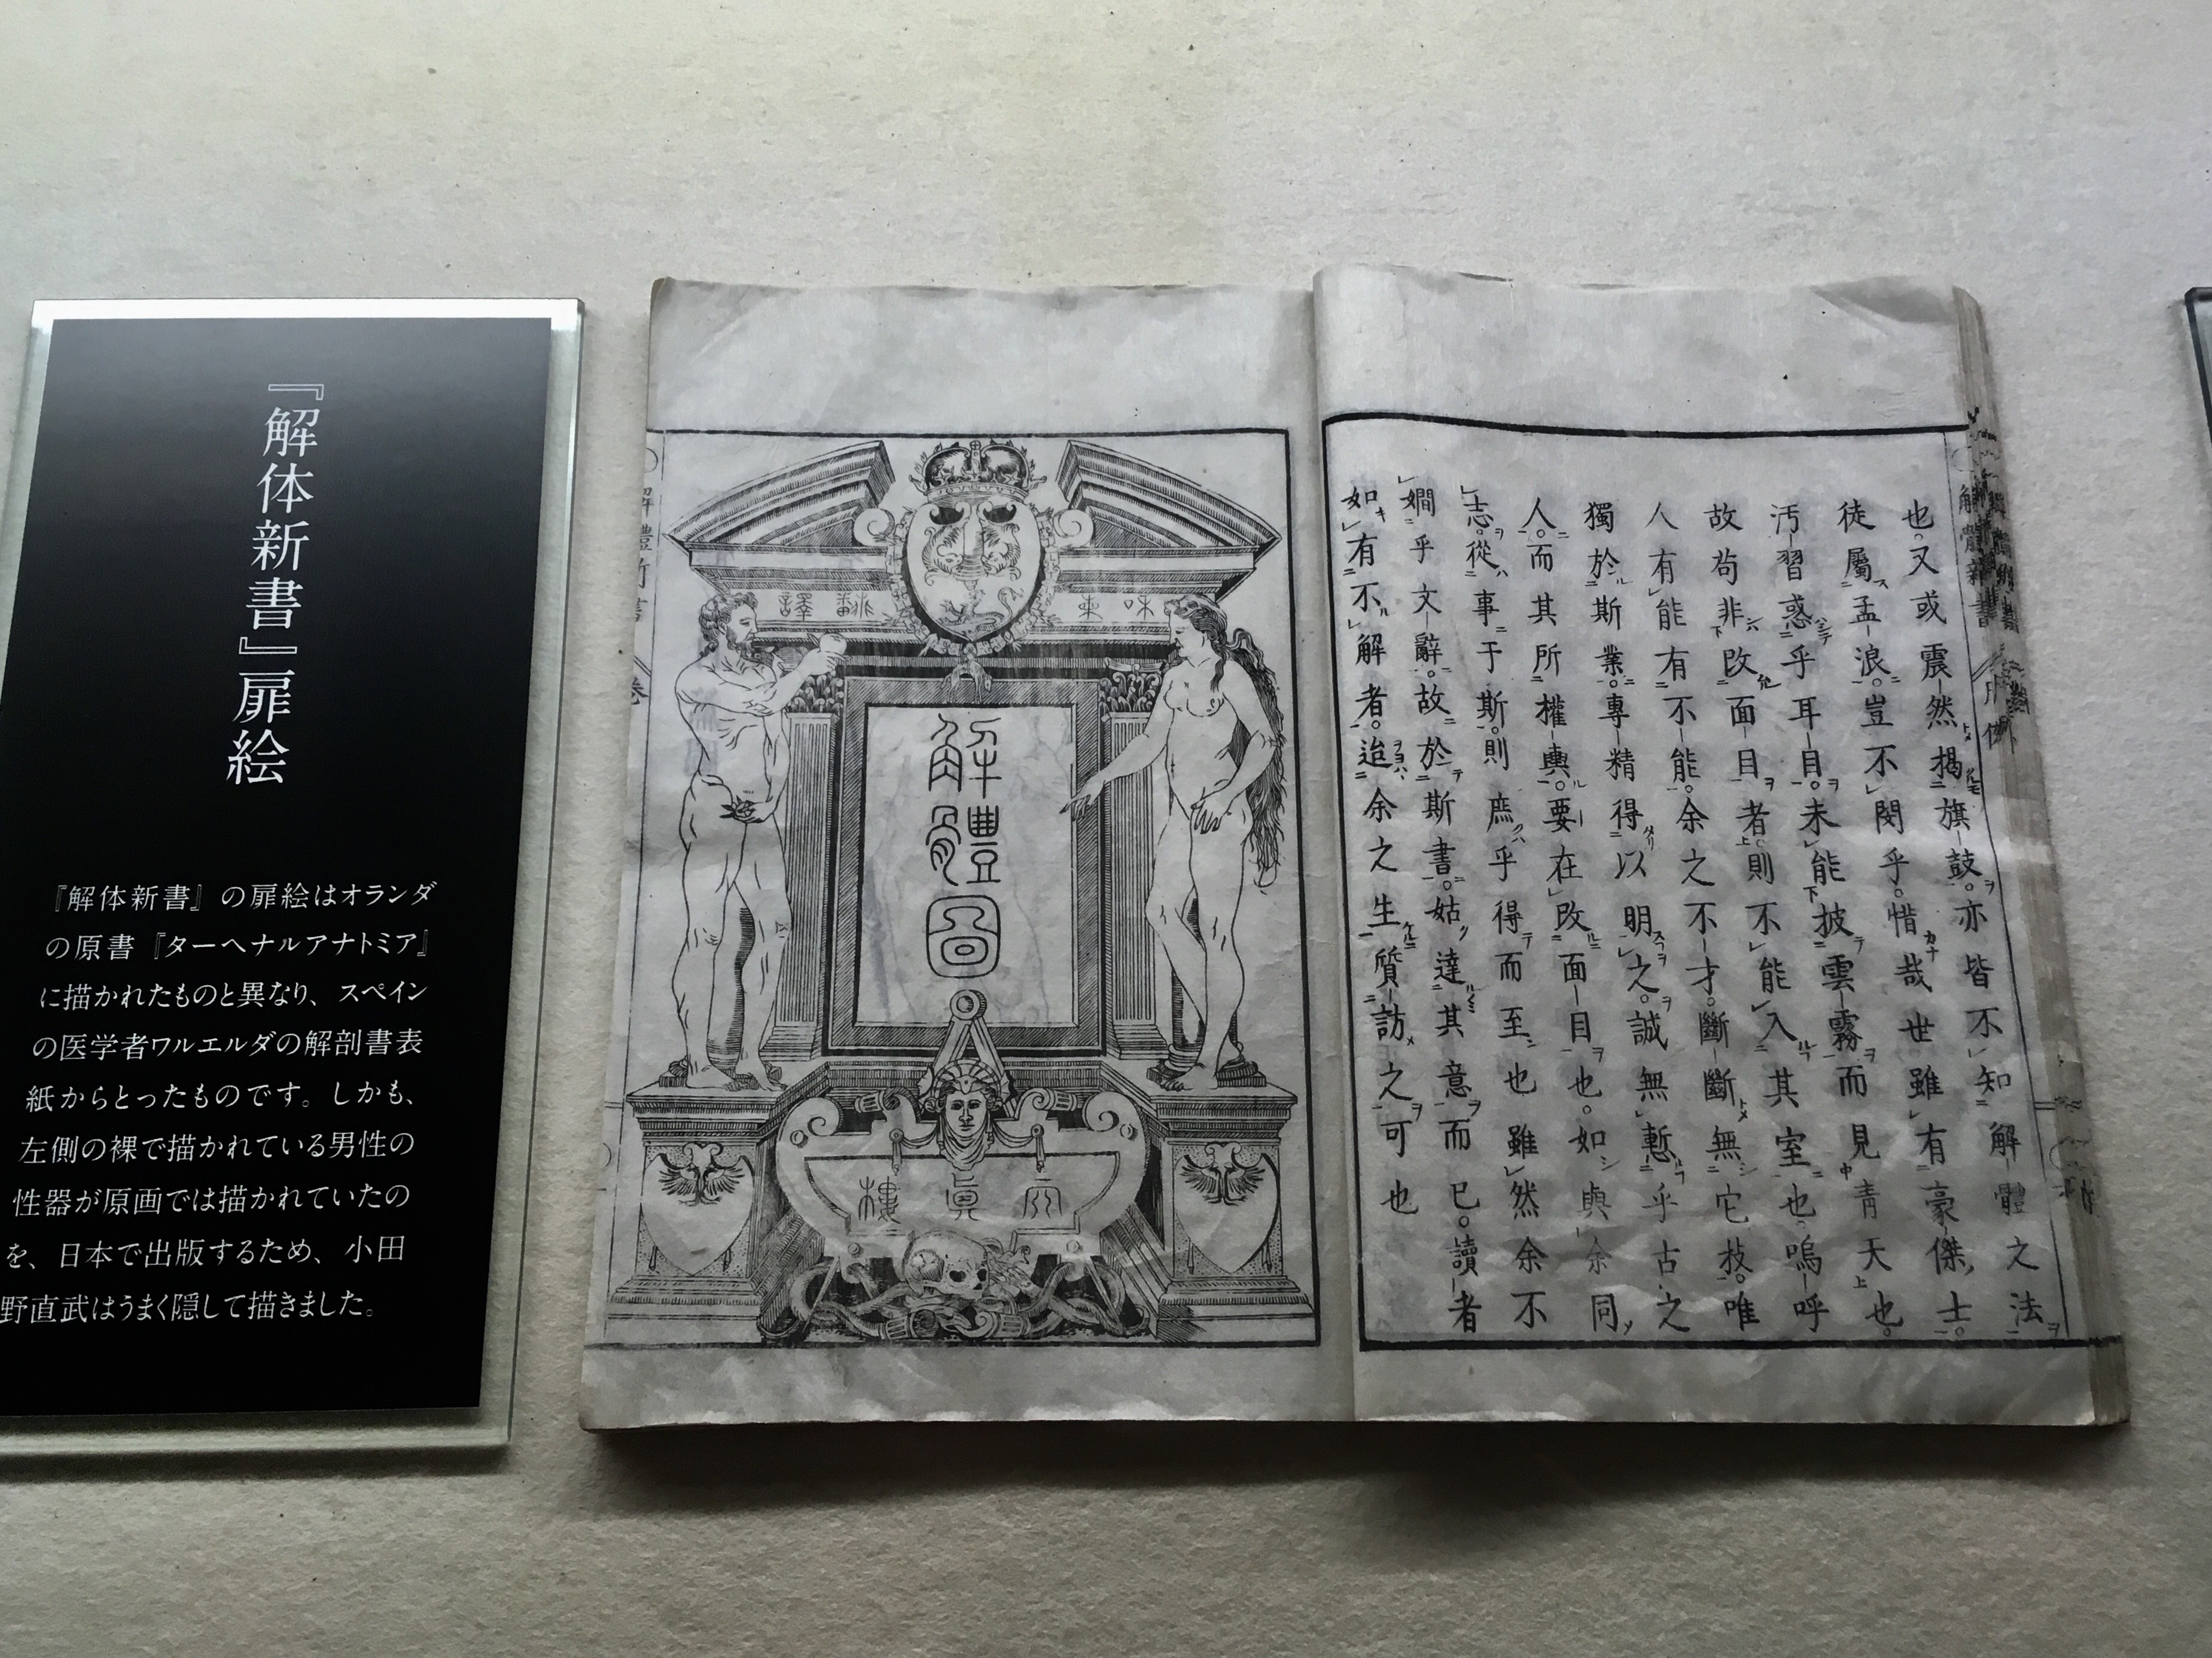 『解体新書』扉絵
『解体新書』の扉絵はオランダ
の原書『ターヘナルアナトミア』
に描かれたものと異なり、スペイン
の医学者ワルエルダの解剖書表
紙からとったものです。しかも、
左側の裸で描かれている男性の
性器が原画では描かれていたの
を、日本で出版するため、小田
野直武はうまく隠して描きました。
也。又或震然揭旗鼓。亦皆不知解體之法
徒屬孟浪。豈不閔乎。惜哉世雖有豪傑士。
汚習惑乎耳目。未能披雲霧而見青天也。
故苟非改面目者。則不能入其室也。嗚呼
人有能有不能。余之不才。斷斷無它技。唯
獨於斯業。專精得以明之。誠無慙乎古之
人。而其所權輿。要在改面目也。如與余同
志。從事于斯。則庶乎得而至也雖然余不
嫺乎文辭。故於斯書。姑達其意而已。讀者
如有不解者。迨余之生質訪之可也
譯翻
解體圖
樓眞天